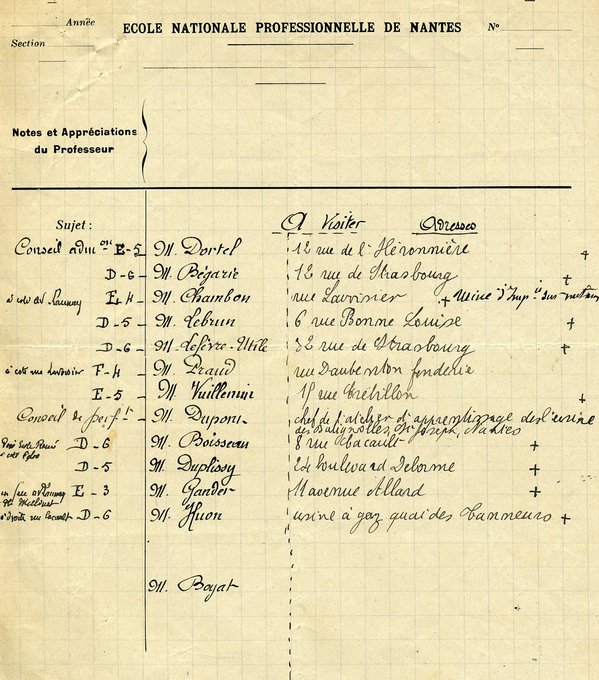 Année
ECOLE NATIONALE PROFESSIONNELLE DE NANTES N°
Section
Notes et Appréciations
du Professeur
Sujet : A Visiter Adresses
Conseil adm on E-5 M. Dortel 12 rue de l'Héronnière +
D-6 M. Bégarie 12 rue de Strasbourg +
à côté av. Launay E-4 M. Chambon rue Lavoisier + Usine d'Imp
D-5 M. Lebrun 6 rue Bonne Louise +
D-6 M. Lefèvre-Utile 32 rue de Strasbourg +
à côté rue Lavoisier F-4 M. Fraud rue Daubenton fonderie
E-5 M. Vuillemin 15 rue Crébillon +
Conseil de perf t M. Dupont chef de l'atelier d'apprentissage de l'usine
des Batignolles, St Joseph, Nantes
D-6 M. Boisseau 8 rue Cacault +
D-5 M. Duplissy 24 boulevard Delorme +
en face av Launay E-3 M. Gander 11 avenue Allard +
à droite rue Cacault D-6 M. Huon usine à gaz quai des Tanneurs +
M. Boyat